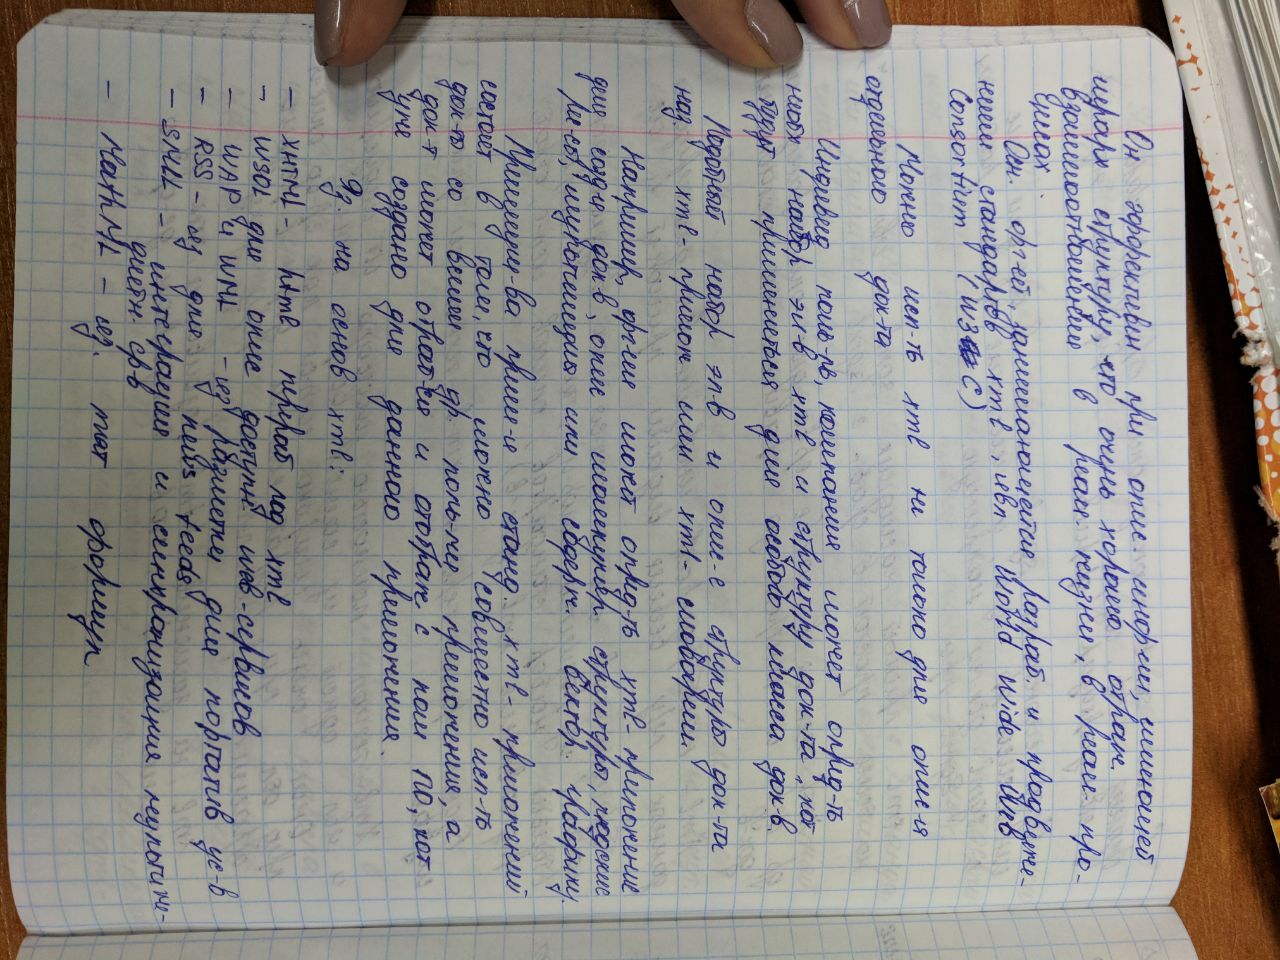 Он эффективен при опис. инф-ии, имеющей
иерарх структуру, что очень хорошо отраж.
взаимоотношение в реал. жизни, в реал. про-
цессах
Осн. орг-ей, занимающейся разраб. и продвиже-
нием стандартов xml, явл World Wide Web
Consortium (W3C)
Можно исп-ть xml не только для опис-я
отдельного док-та
Индивид польз-ль, компания может опред-ть
набор эл-в xml и структуру док-та, кот
будут применяться для особого класса док-в.
Подобный набор эл-в и опис-е структуры док-та
наз. xml-прилож или xml-словарем
Например, орг-ия может опред-ть xml-приложение
для созд док-в, опис молекуляр. структуры,
мультимедиа или содерж. вектор. графику
Преимущ-ва прим-я станд. xml-приложений
состоит в том, что можно совместно исп-ть
док-ты со всеми др. польз-ми приложения, а
док-т может отображ с пом ПО, кот
уже создано для данного приложения.
Яз. на основ xml:
— XHTML - html перераб под xml
— WSDL для опис доступн веб-сервисов
— WAP и WML - яз разметки для портатив ус-в
— RSS - яз для news feeds
— SMIL - интеграция и синхронизация мультиме-
дийн. ср-в
— MathML - яз. мат формул